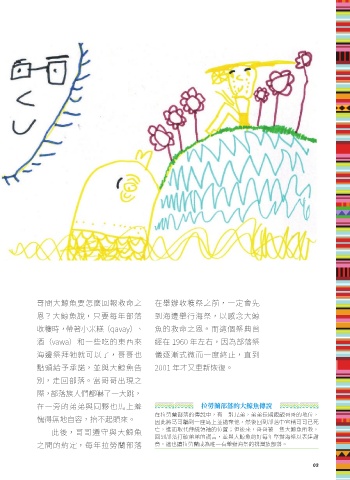 哥問大鯨魚要怎麼回報救命之
恩？大鯨魚說，只要每年部落
收穫時，帶著小米糕（qavay）、
酒（vawa）和一些吃的東西來
海邊祭拜牠就可以了，哥哥也
點頭給予承諾，並與大鯨魚告
別，走回部落。當哥哥出現之
際，部落族人們都嚇了一大跳，
在一旁的弟弟與同夥也馬上羞
愧得無地自容，抬不起頭來。
此後，哥哥遵守與大鯨魚
之間的約定，每年拉勞蘭部落
在舉辦收穫祭之前，一定會先
到海邊舉行海祭，以感念大鯨
魚的救命之恩。而這個祭典曾
經在 1960 年左右，因為部落祭
儀逐漸式微而一度終止，直到
2001 年才又重新恢復。
拉勞蘭部落的大鯨魚傳說
03